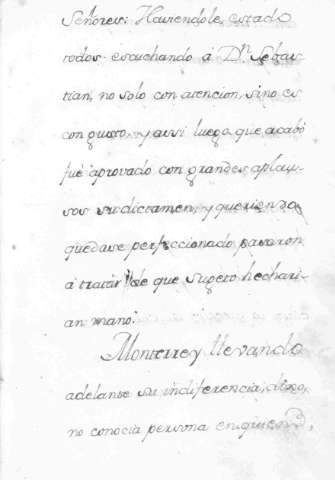 Señores: Haviendole estado
todos escuchando á Dn. Sebas-
tian, no solo con atencion, sino es
con gusto, y assi luego que acabó
fué aprovado con grandes aplau-
sos su dictamen, y queriendo
quedase perfeccionado pasaron
á tratar de que sugeto hechari-
an mano.
Monterrey llevando
adelante su indiferencia, dixo,
no conocia persona en quien